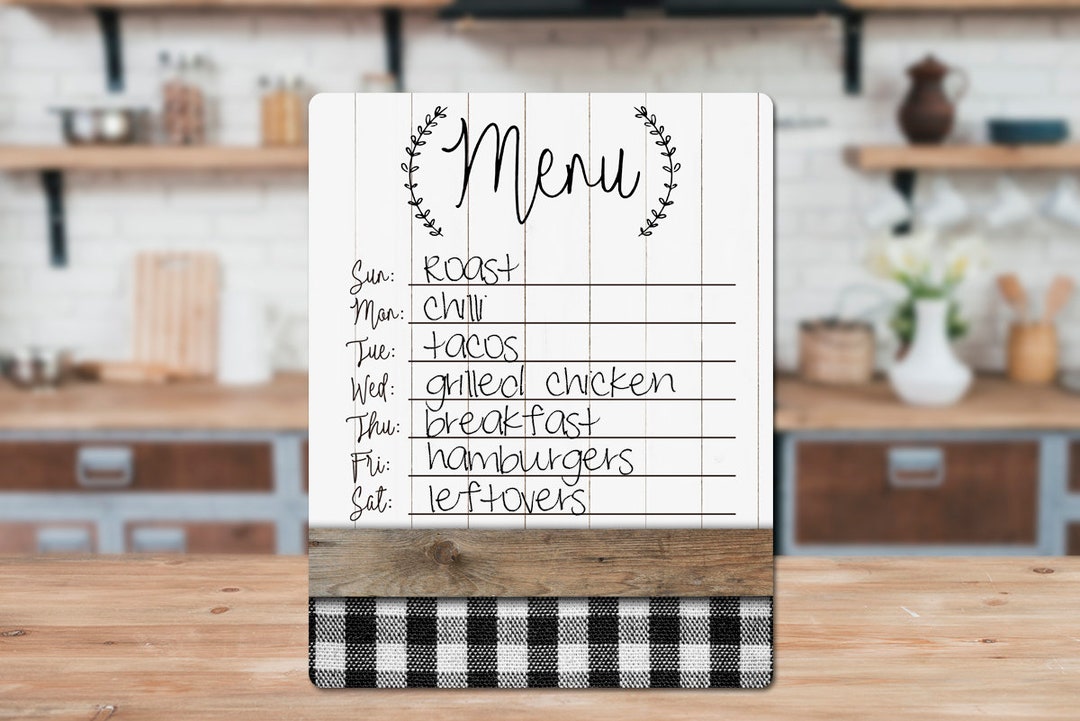 Menu
Sun: Roast
Mon: chilli
Tue: tacos
Wed: grilled chicken
Thu: breakfast
Fri: hamburgers
Sat: leftovers